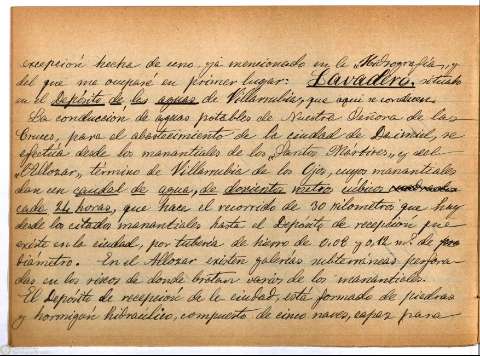 excepción hecha de uno, ya mencionado en la "Hidrografia", y
del que me ocuparé en primer lugar: Lavadero, situado
en el Depósito de las aguas de Villarrubia, que aqui se conducen.
La conducción de aguas potables de Nuestra Señora de las
Cruces, para el abastecimiento de la ciudad de Daimiel, se
efectúa desde los manantiales de los "Santos Mártires" y del
"Allozar", término de Villarrubia de los Ojos, cuyos manantiales
dan un caudal de agua, de doscientos metros cúbicos
cada 24 horas, que hace el recorrido de 30 kilometros que hay
desde los citados manantiales hasta el Deposito de recepción que
existe en la ciudad, por tuberia de hierro de 0,08 y 0,12 m. de
diámetro. En el Allozar existen galerias subterráneas perfora-
das en los riscos de donde brotan varios de los manantiales.
El Depósito de recepción de la ciudad, está formado de piedras
y hormigón hidraulico, compuesto de cinco naves, capaz para